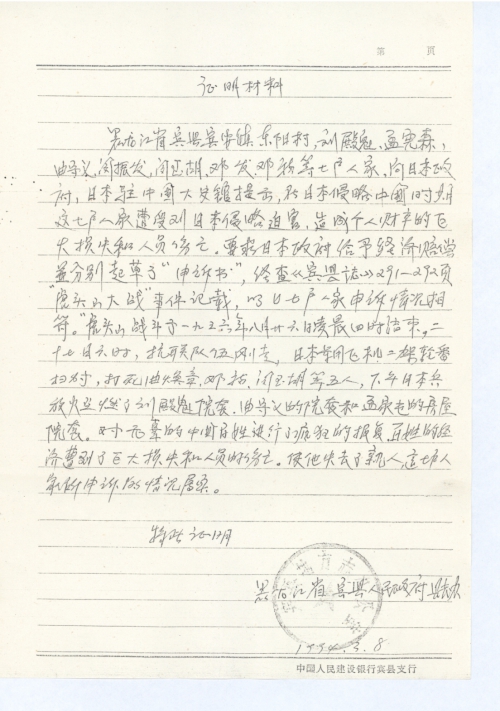 第 页
证明材料
黑龙江省宾县宾安镇东阳村,刘殿魁、孟宪森、
曲学义、闭振发、闭玉胡、邓发、邓 等七户人家,向日本政
府,日本驻中国大使馆提出,在日本侵略中国时期
这七户人家遭受到日本侵略迫害,造成个人财产的巨
大损失和人员伤亡。要求日本政府给予经济赔偿
並分别起草了“申诉书”,经查《宾县志》291-292页
“虎头山大战”事件记载,以七户人家申诉情况相
符。“虎头山战斗于一九三六年八月廿六日凌晨四时结束。二
十七日六时,抗联队伍 ,日本常用飞机二架轮番
扫射,打死曲焕章、邓 、闭玉胡等五人,下午日本兵
放火烧了刘殿魁院套、曲学义的院套和孟家屯的房屋
院套。对无辜的中国百姓进行了疯狂的报复,百姓的经
济遭到了巨大损失和人员的伤亡。使他失去了亲人,这七人
家所申诉的情况属实。
特此证明
黑龙江省宾县人民政府县志办
1994.3.8
中国人民建设银行宾县支行